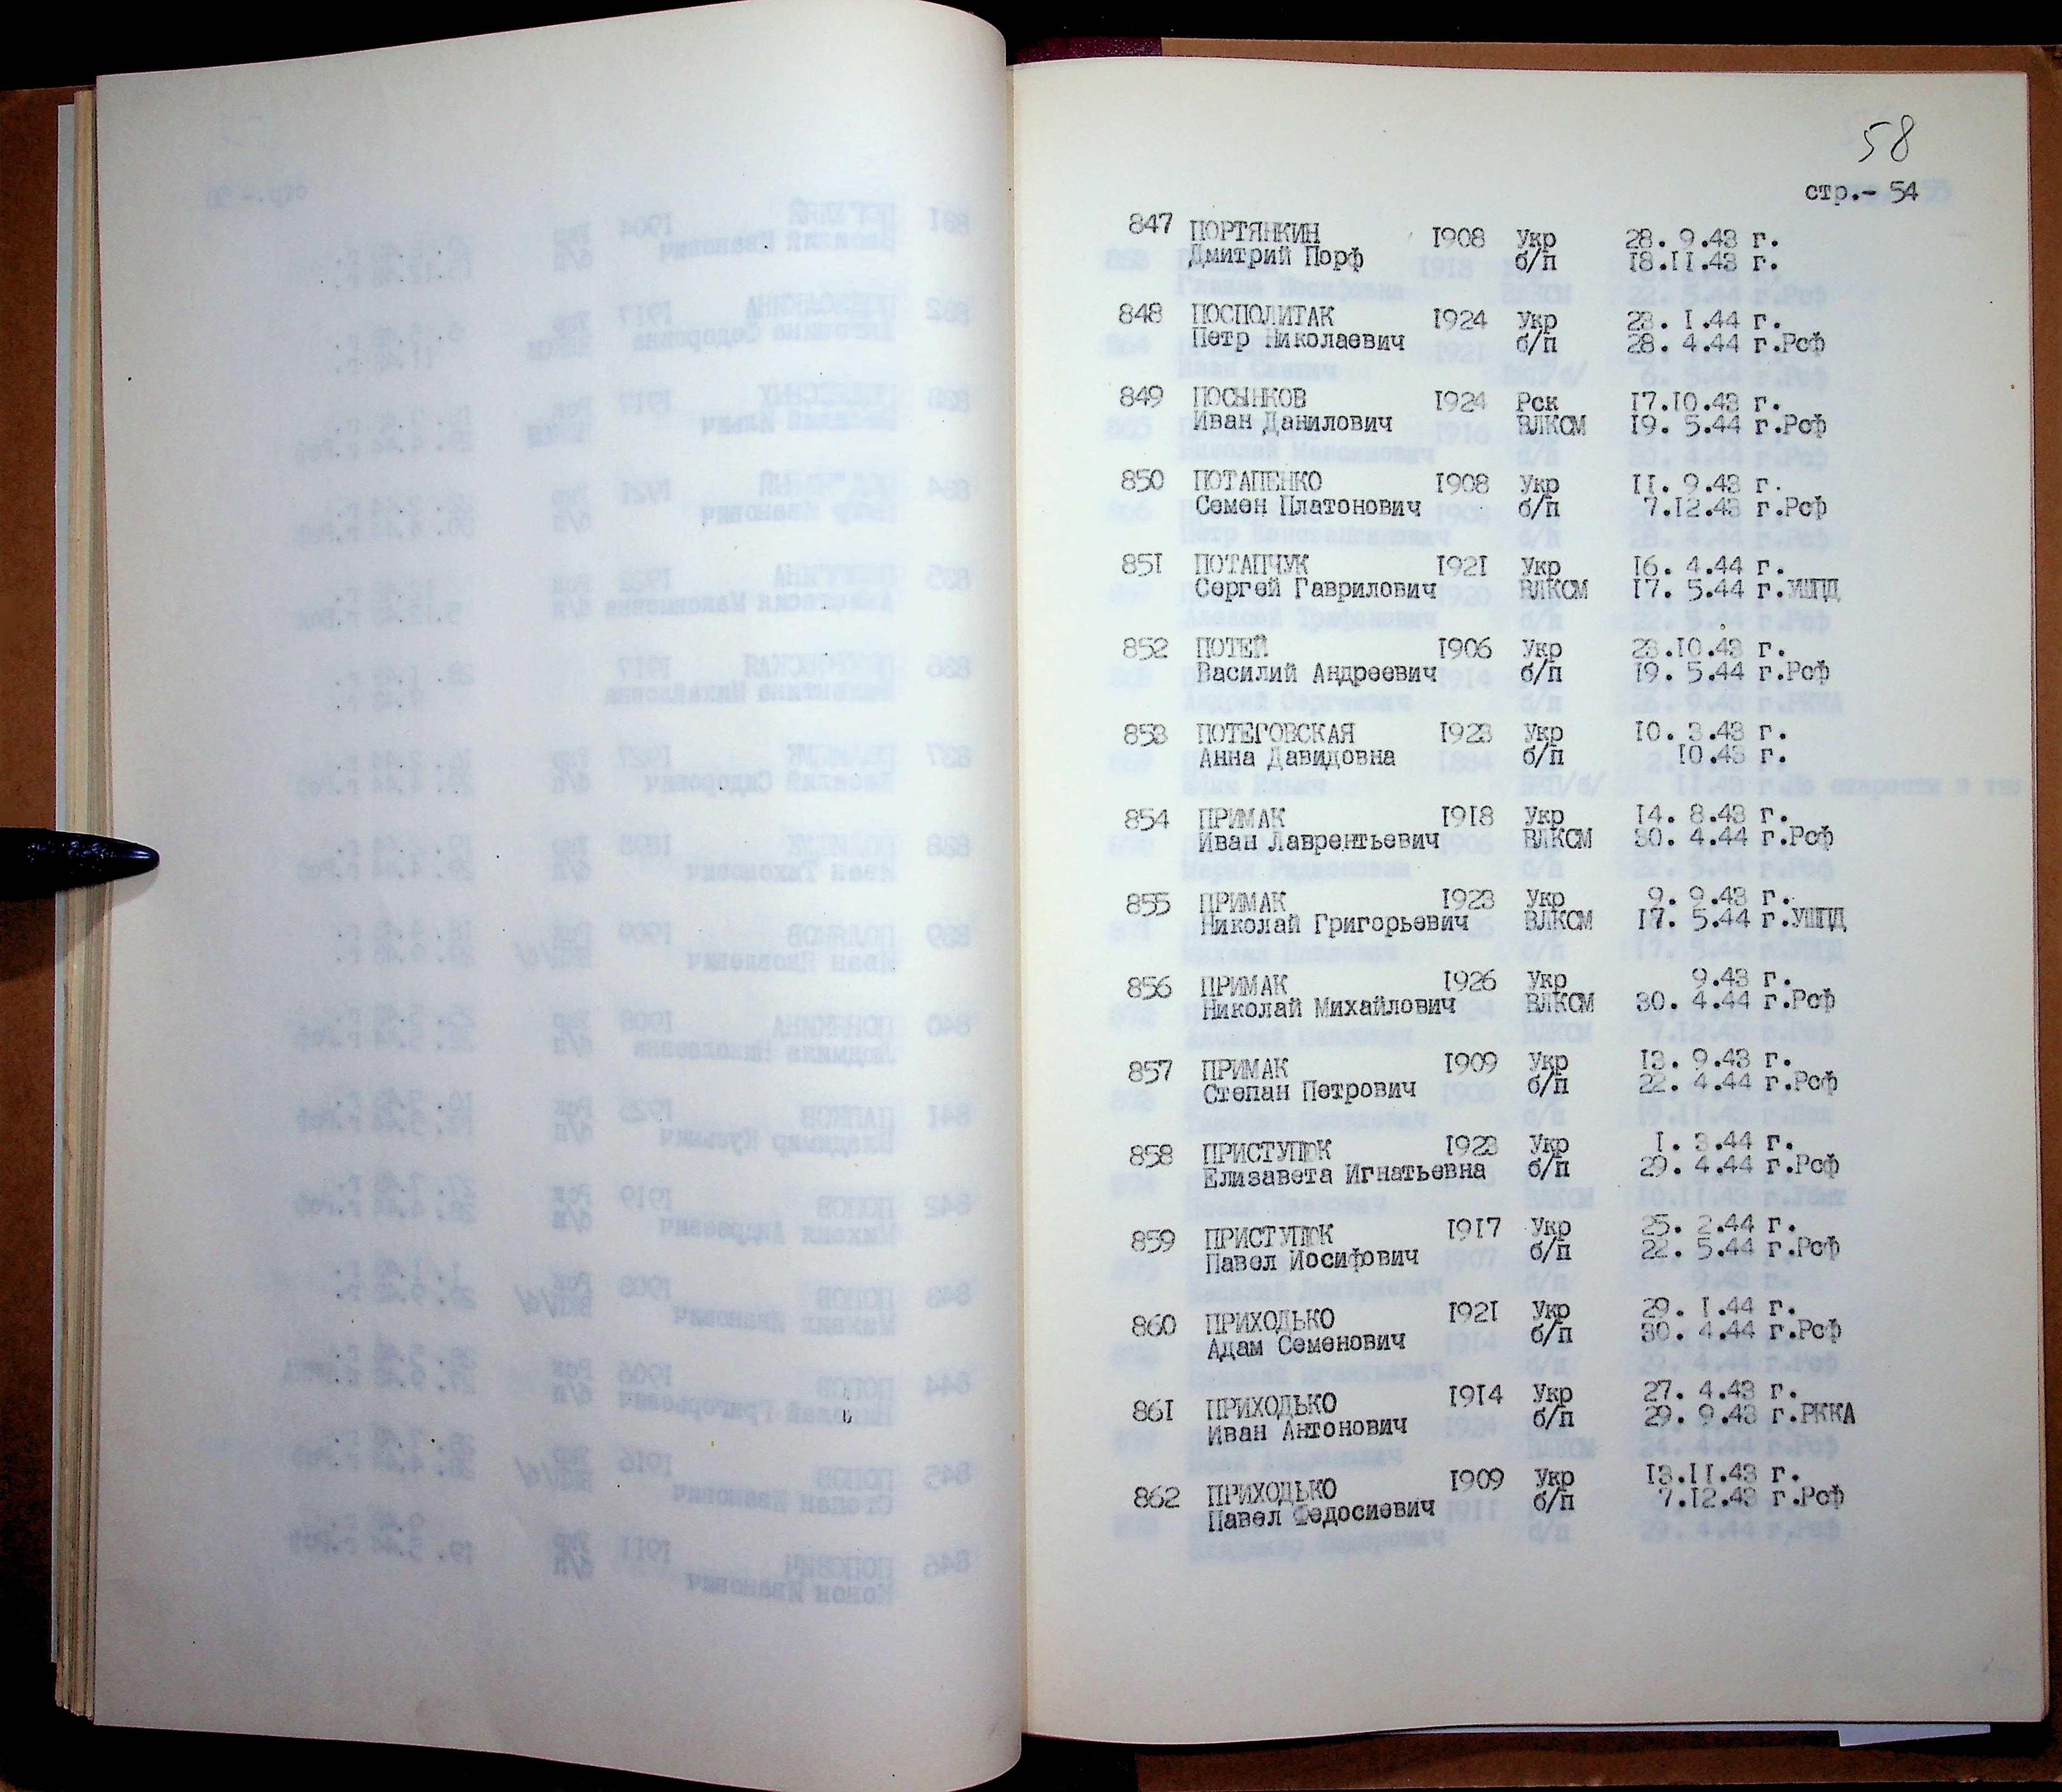 58
стр.- 54
847 ПОРТЯНКИН 1908 Укр 28. 9.43 г.
Дмитрий Порф б/п 18.11.43 г.
848 ПОСПОЛИТАК 1924 Укр 23. 1.44 г.
Петр Николаевич б/п 28. 4.44 г.Рсф
849 ПОСЫНКОВ 1924 Рск 17.10.43 г.
Иван Данилович ВЛКСМ 19. 5.44 г.Рсф
850 ПОТАПЕНКО 1908 Укр 11. 9.43 г.
Семен Платонович б/п 7.12.43 г.Рсф
851 ПОТАПЧУК 1921 Укр 16. 4.44 г.
Сергей Гаврилович ВЛКСМ 17. 5.44 г.УШПД
852 ПОТЕЙ 1906 Укр 23.10.43 г.
Василий Андреевич б/п 19. 5.44 г.Рсф
853 ПОТЕГОВСКАЯ 1923 Укр 10. 3.43 г.
Анна Давидовна б/п 10.43 г.
854 ПРИМАК 1918 Укр 14. 8.43 г.
Иван Лаврентьевич ВЛКСМ 30. 4.44 г.Рсф
855 ПРИМАК 1923 Укр 9. 9.43 г.
Николай Григорьевич ВЛКСМ 17. 5.44 г.УШПД
856 ПРИМАК 1926 Укр 9.43 г.
Николай Михайлович ВЛКСМ 30. 4.44 г.Рсф
857 ПРИМАК 1909 Укр 13. 9.43 г.
Степан Петрович б/п 22. 4.44 г.Рсф
858 ПРИСТУПЮК 1923 Укр 1. 3.44 г.
Елизавета Игнатьевна б/п 29. 4.44 г.Рсф
859 ПРИСТУПЮК 1917 Укр 25. 2.44 г.
Павел Иосифович б/п 22. 5.44 г.Рсф
860 ПРИХОДЬКО 1921 Укр 29. 1.44 г.
Адам Семенович б/п 30. 4.44 г.Рсф
861 ПРИХОДЬКО 1914 Укр 27. 4.43 г.
Иван Антонович б/п 29. 9.43 г.РККА
862 ПРИХОДЬКО 1909 Укр 13.11.43 г.
Павел Федосиевич б/п 7.12.43 г.Рсф